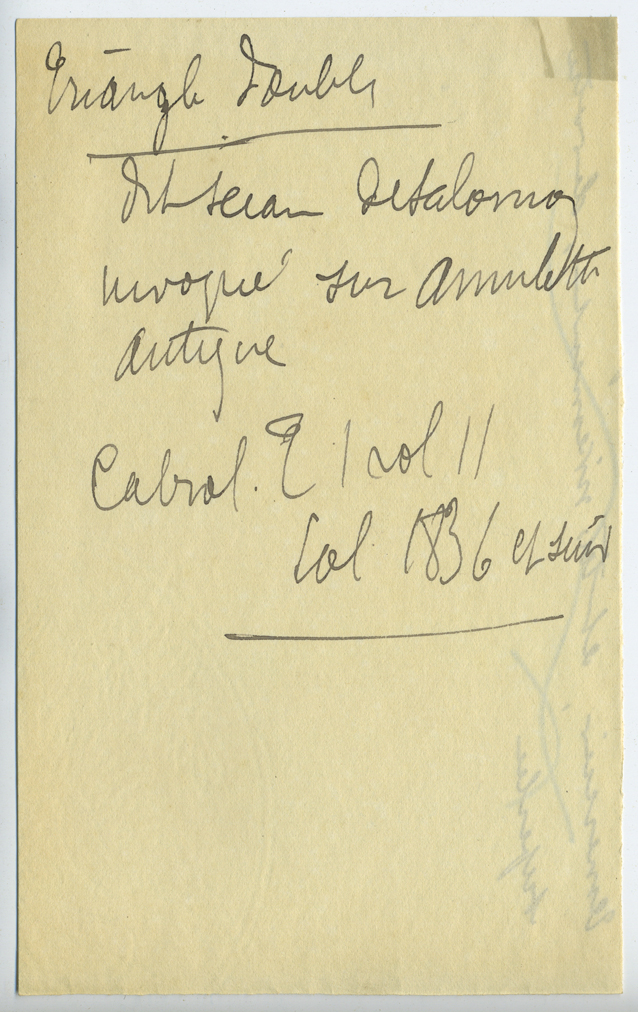 Triangle Double
Dit sceau de Salomon
invoqué sur amulette
antique
Cabrol. T 1 vol 11
Col 1836 et suiv